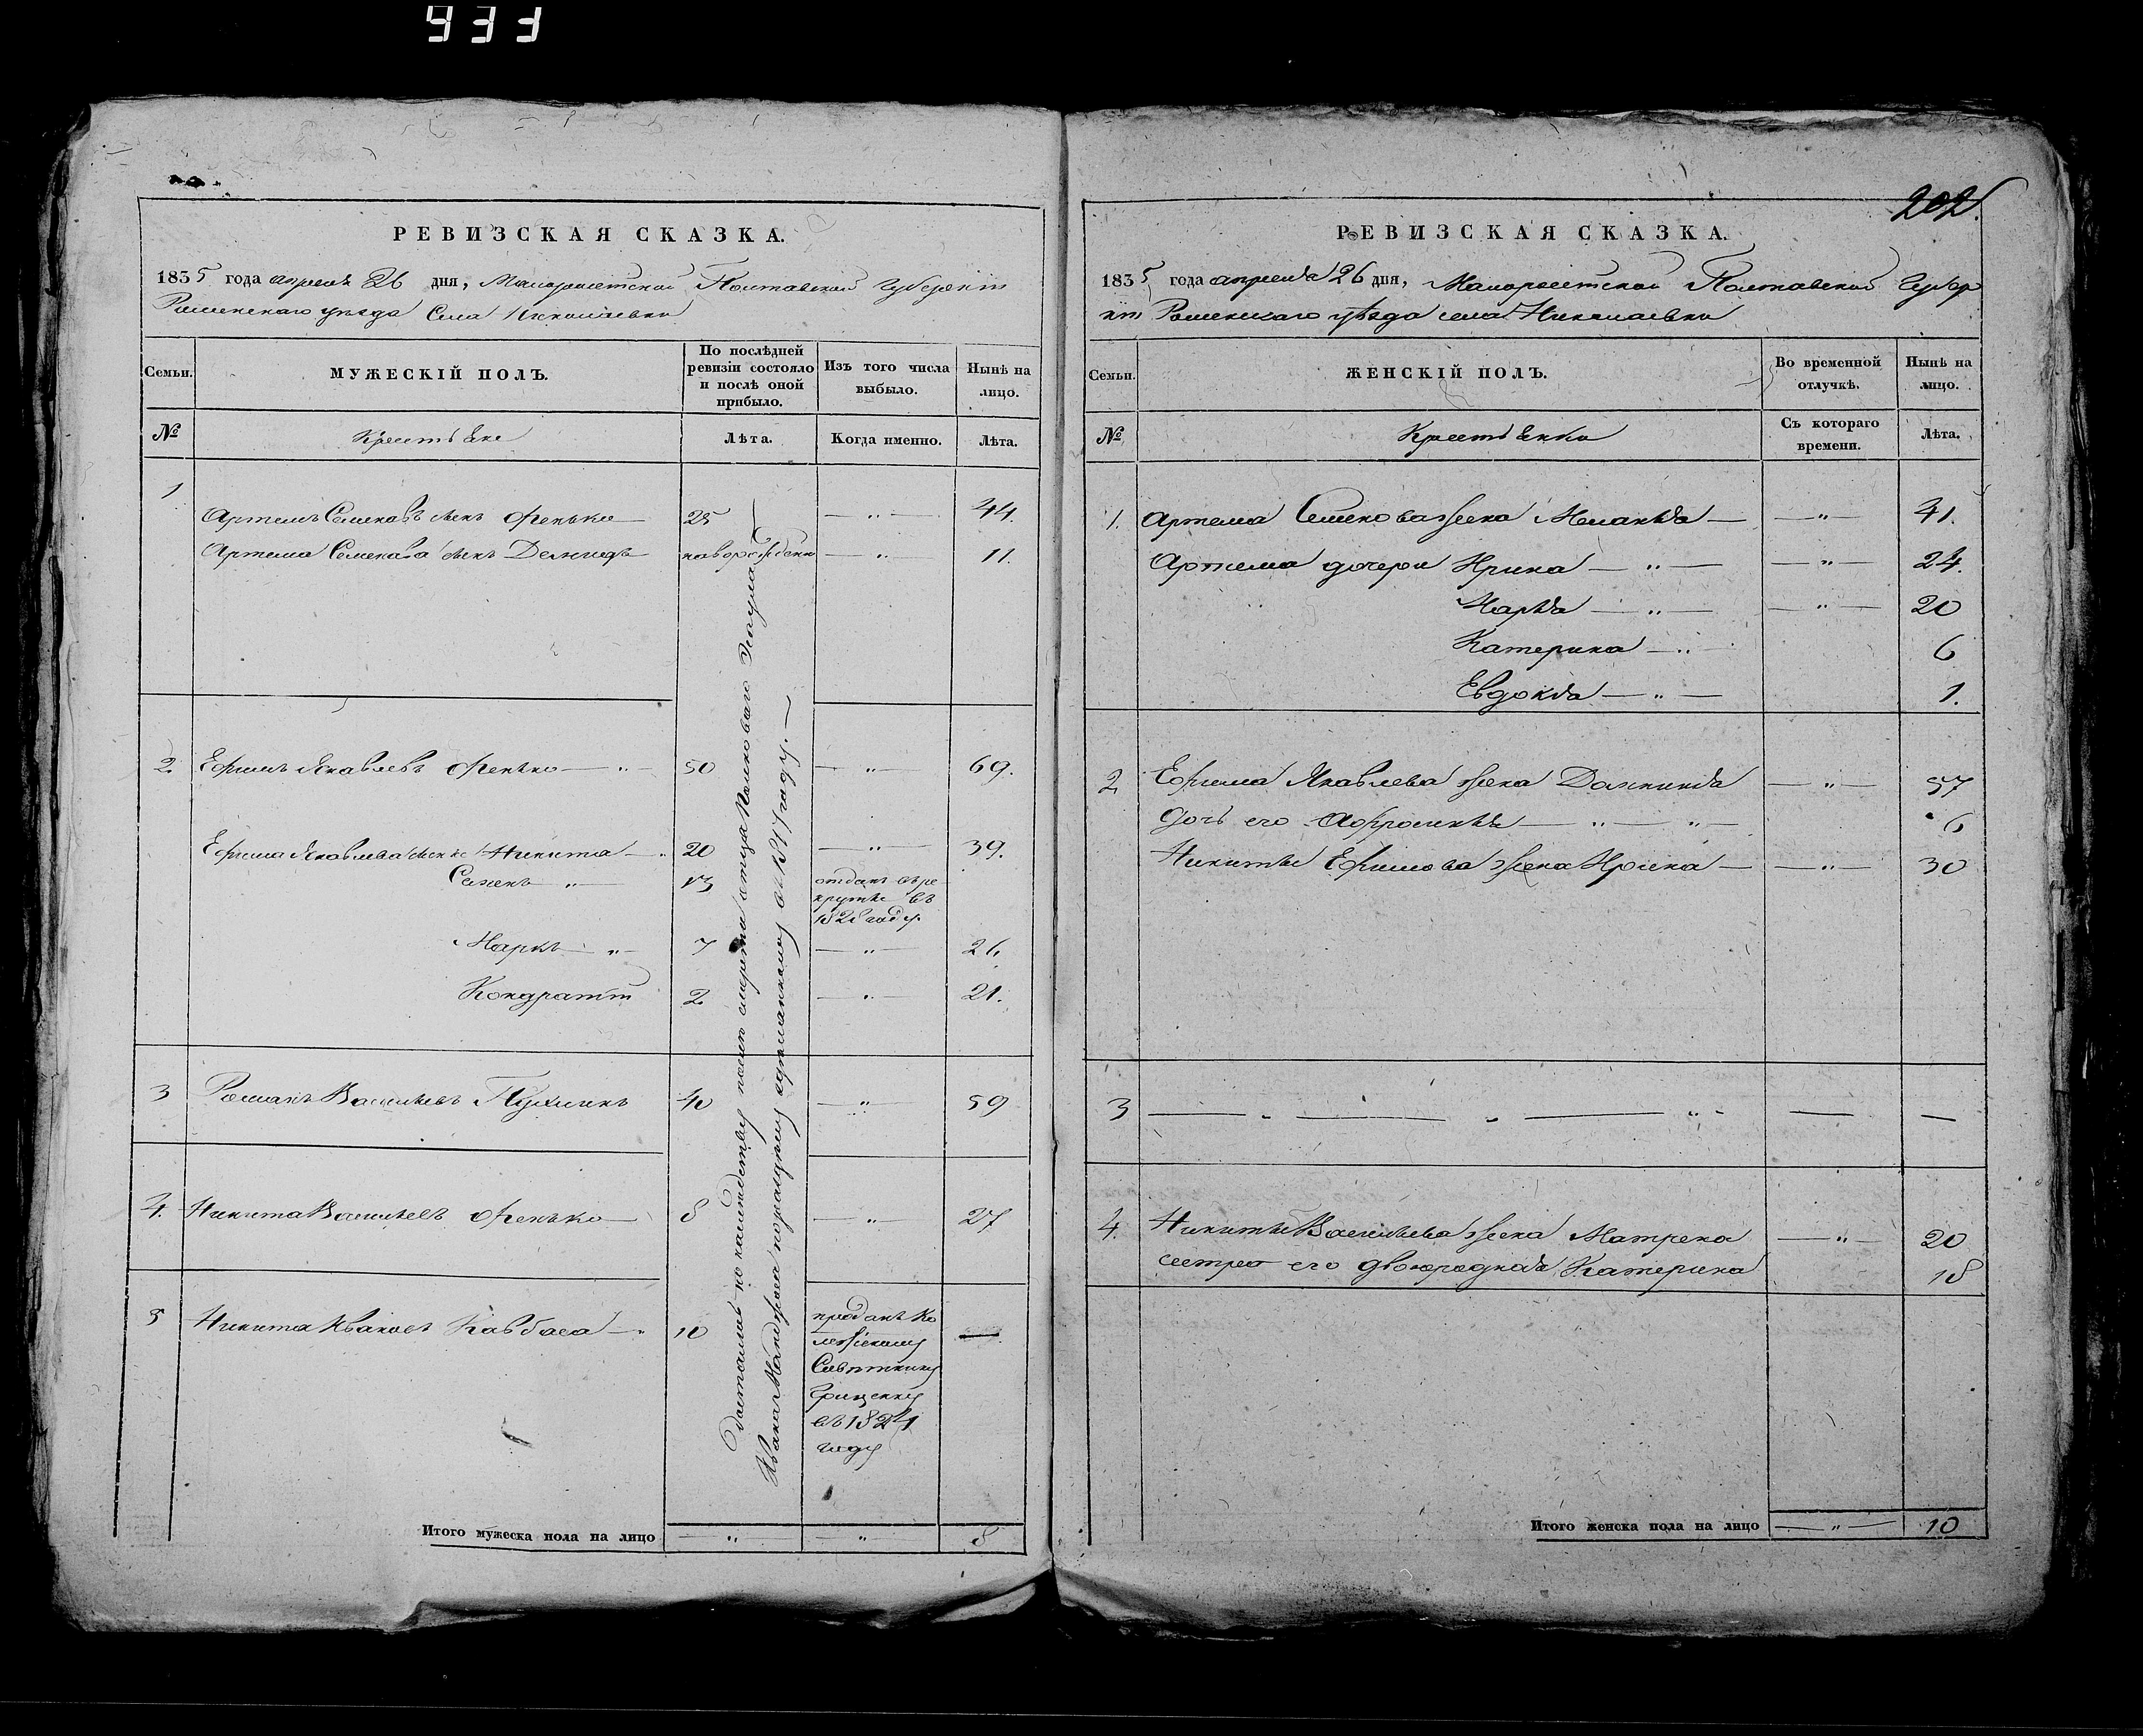 933
РЕВИЗСКАЯ СКАЗКА.
1835 года апреля 26 дня, Малороссійской Полтавской Губерніи
Роменскаго уѣзда Села Николаевки
Семьи.
МУЖЕСКІЙ ПОЛЪ.
По послѣдней ревизіи состояло и послѣ оной прибыло.
Изъ того числа выбыло.
Нынѣ на лицо.
№
Крестьяне
Лѣта.
Когда именно.
Лѣта.
1
Артемъ Семеновъ сынъ 25 — „ — 44.
Артема Семенова сынъ новорожденъ — „ — 11.
2 Ефимъ Яковлевъ — „ — 50 — „ — 69.
Ефима Яковлева сынъ Никита — „ 20 — „ — 39.
Семенъ „ — 13 отданъ въ ре
круты въ
1828 году
Марко — „ — 7 — „ — 26.
Кондратій 2 — „ — 21.
3 Романъ Васильевъ 40 — „ — 59
4. Никита Васильевъ 8 — „ — 27
5 Никита Ивановъ Ковбаса — „ 10 проданъ Ко
лежскому
Совѣтнику
въ 1824
году
—
Достались по наслѣдству послѣ смерти отца Полковаго Эсаула
Ивана порядчику въ году. —
Итого мужеска пола на лицо — „ — — „ — 8
202.
РЕВИЗСКАЯ СКАЗКА.
1835 года апреля 26 дня, Малороссійской Полтавской Губер
ніи Роменскаго уѣзда села Николаевки
Семьи.
ЖЕНСКІЙ ПОЛЪ.
Во временной отлучкѣ.
Нынѣ на лицо.
№
Крестьянки
Съ котораго времени.
Лѣта.
1. Артема Семенова жена Меланія — — „ — 41.
Артема дочери Ирина — „ — — „ — 24.
Марія — „ — — „ — 20
Катерина — „ — 6
Евдокія — „ — 1.
2 Ефима Яковлева жена Домникія — „ — 57
дочь его Афросинія — „ — „ — 6
Никиты Ефимова жена Ирина — — „ — 30
3 — „ — „ — „ — — —
4. Никиты Васильева жена Матрена — „ — 20
сестра его двоюродная Катерина 18
Итого женска пола на лицо — „ — 10